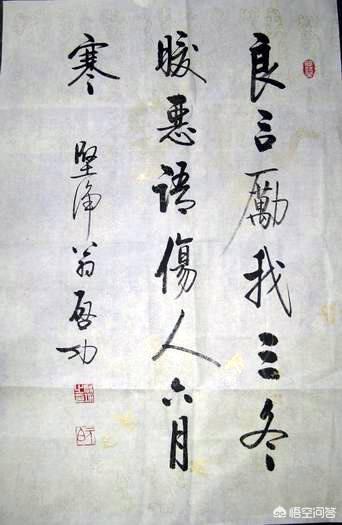 良言勵我三冬
暖惡語傷人六月
寒
堅淨翁啓功
悟空问答